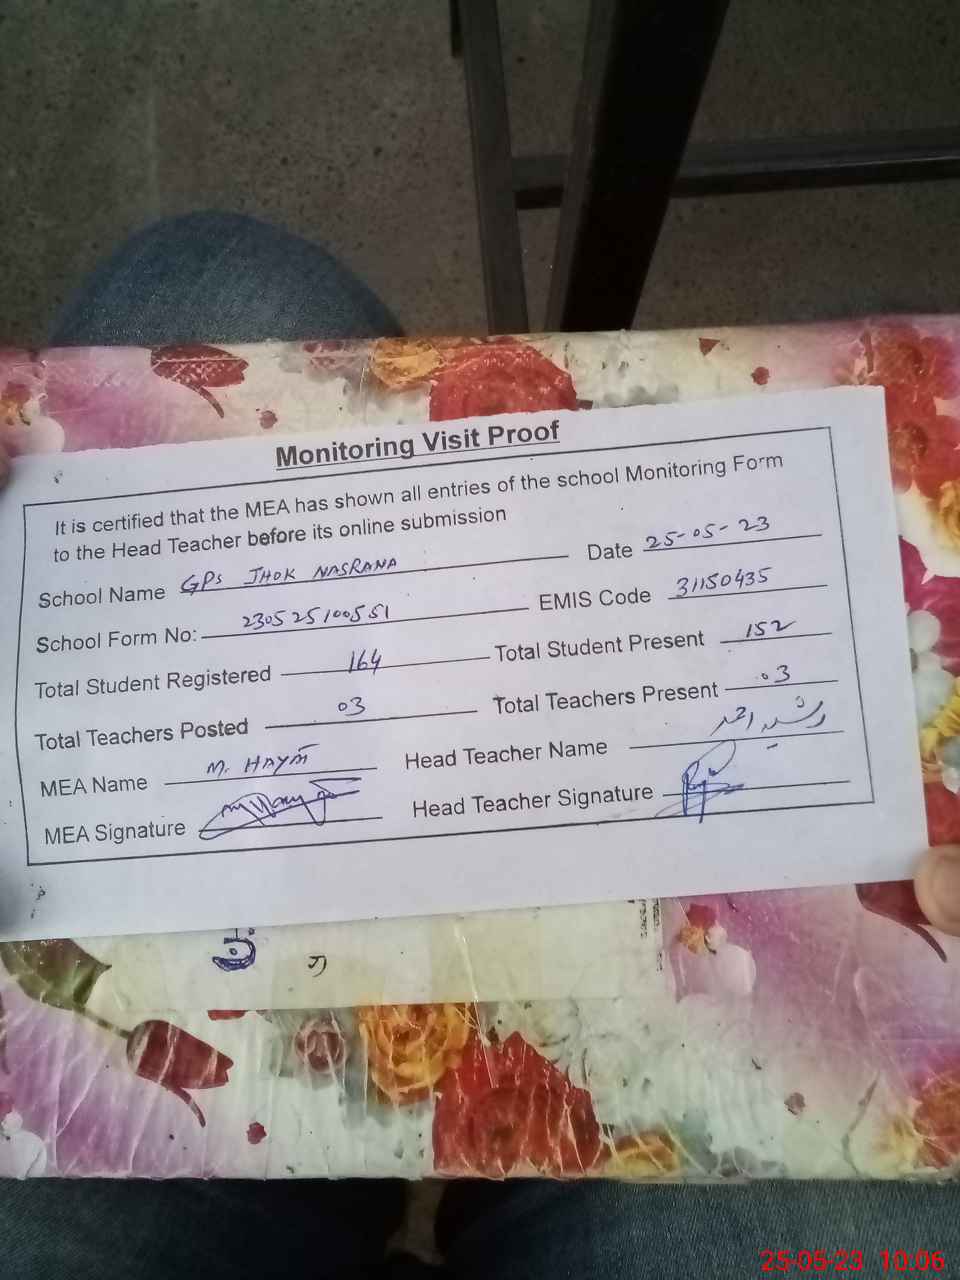 Monitoring Visit Proof
It is certified that the MEA has shown all entries of the school Monitoring Form
to the Head Teacher before its online submission
School Name GPS JHOK NASRANA Date 25-05-23
School Form No: 230525100551 EMIS Code 31150435
Total Student Registered 164 Total Student Present 152
Total Teachers Posted 03 Total Teachers Present 03
MEA Name M. HAYM Head Teacher Name رشید احمد
MEA Signature Head Teacher Signature
25-05-23 10:06